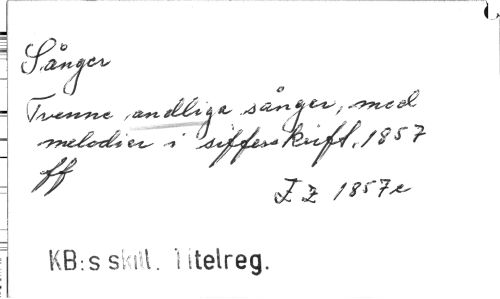 Sånger
Tvenne andliga sånger, med
melodier i sifferskrift. 1857
ff
EZ 1857c
KB:s skill. Titelreg.